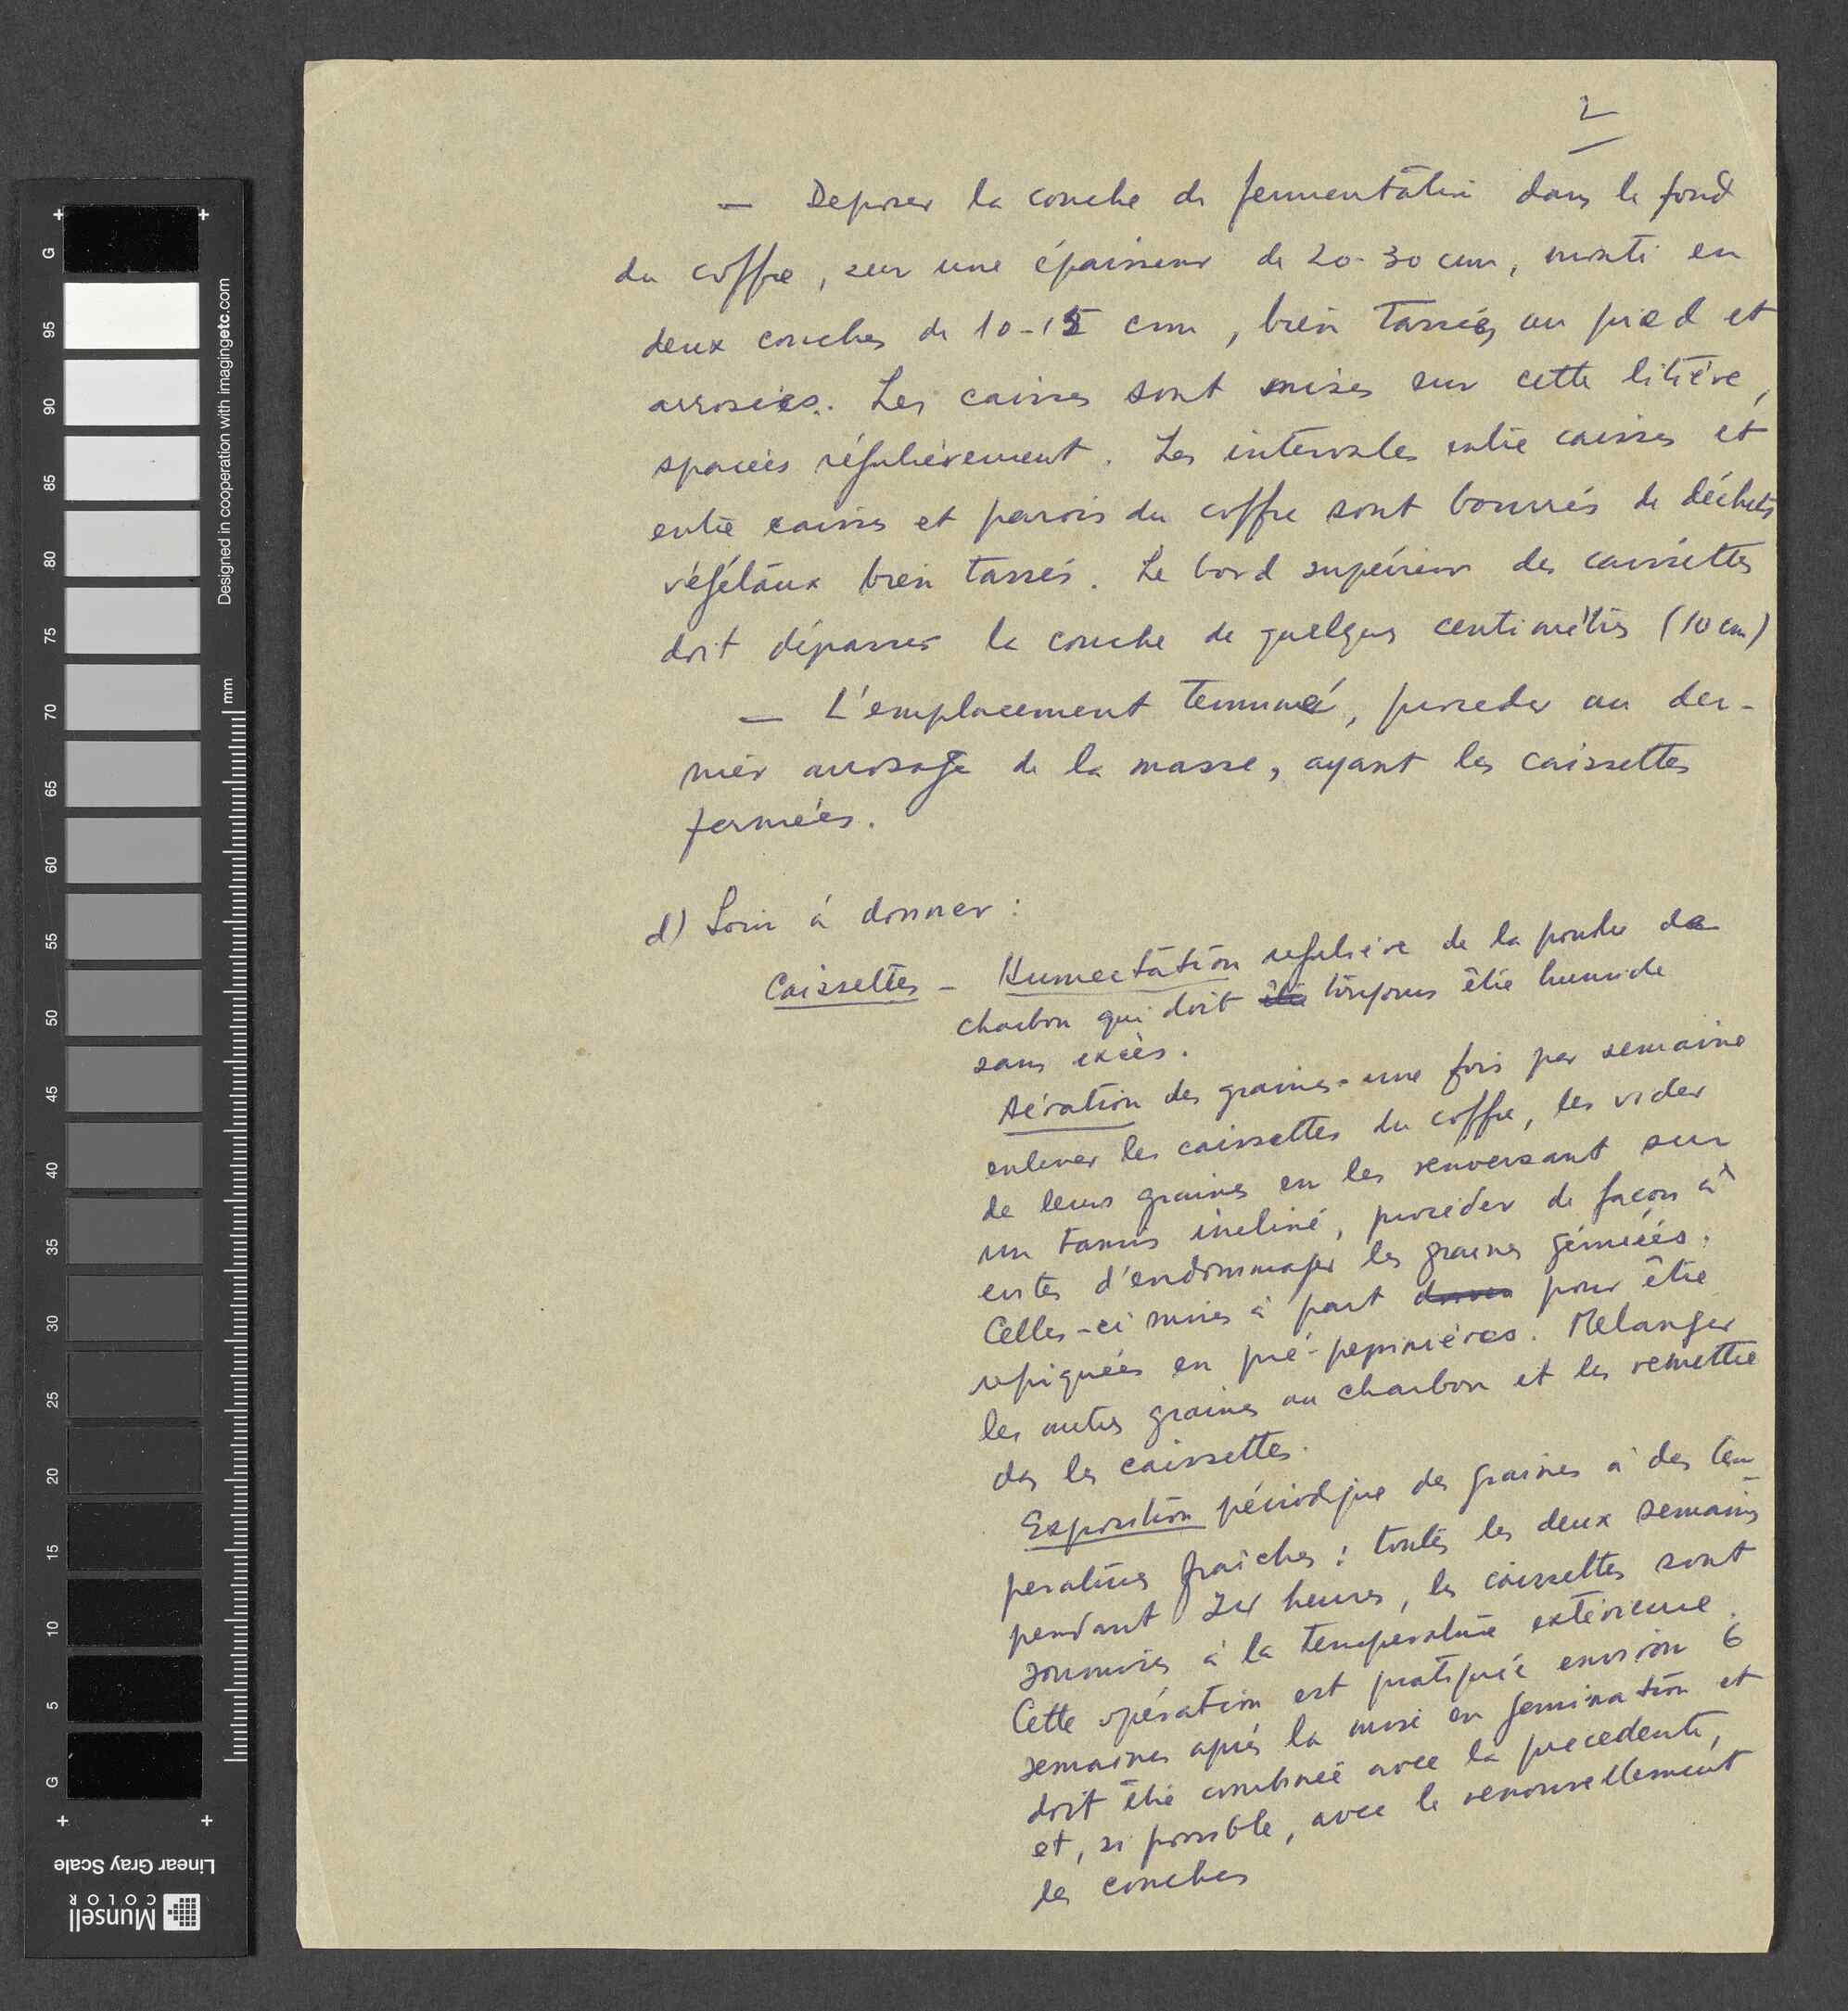 2
— Deposer la couche de fermentation dans le fond
du coffre, sur une épaisseur de 20-30 cm, monté en
deux couches de 10-15 cm, bien tassées au pied et
arrosées. Les caisses sont mises sur cette litière,
spacées régulièrement. Les intervales entre caisses et
entre caisses et parois du coffre sont bourrés de déchets
végétaux bien tassés. Le bord supérieur des caissettes
doit dépasser la couche de quelques centimètres (10 cm)
— L'emplacement terminé, proceder au der-
nier arrosage de la masse, ayant les caissettes
fermées.
d) Soin à donner :
Caissettes - Humectation regulière de la poudre de
charbon qui doit être toujours être humide
sans excès.
Aération des graines - une fois par semaine
enlever les caissettes du coffre, les vider
de leurs graines en les renversant sur
un tamis incliné, procéder de façon à
eviter d'endommager les graines germées.
Celles-ci mises à part pour être
repiquées en pré-pepinières. Melanger
les autres graines au charbon et les remettre
ds les caissettes.
Exposition périodique des graines à des tem-
peratures fraîches : toutes les deux semaines
pendant 24 heures, les caissettes sont
soumises à la température extérieure.
Cette opération est pratiquée environ 6
semaines après la mise en germination et
doit être combinée avec la precedente,
et, si possible, avec le renouvellement
des couches
Designed in cooperation with imagingetc.com
mm
G
95
90
85
80
75
70
65
60
55
50
45
40
35
30
25
20
15
10
5
G
Linear Gray Scale
Munsell
COLOR